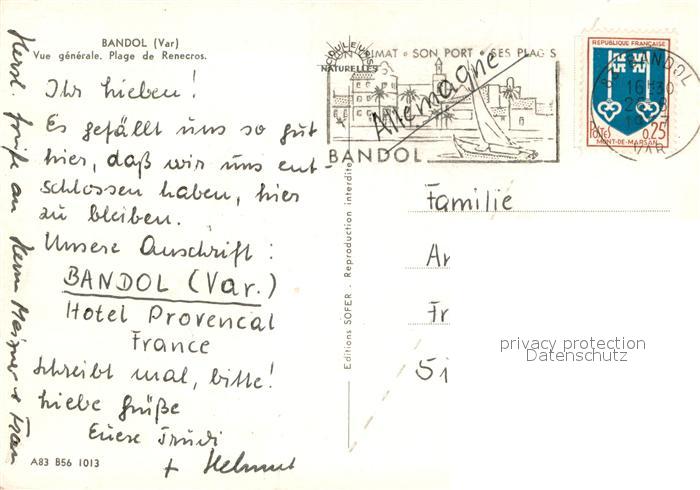 BANDOL (Var)
Vue générale. Plage de Renecros.
Ihr Lieben!
Es gefällt uns so gut
hier, daß wir uns ent-
schlossen haben, hier
zu bleiben.
Unsere Anschrift:
BANDOL (Var.)
Hotel Provencal
France
Schreibt mal, bitte!
Liebe Grüße
Euere Trudi
+ Helmut
Herzl. Grüße an Herrn Meixner + Frau
A83 B56 1013
Editions SOFER. . Reproduction interdite
SON CLIMAT • SON PORT • SES PLAG S
COULEURS
NATURELLES
BANDOL
Allemagne
REPUBLIQUE FRANÇAISE
POSTES 0,25
MONT-DE-MARSAN
BANDOL
16H30
VAR
Familie
Ar
Fr
Si
privacy protection
Datenschutz